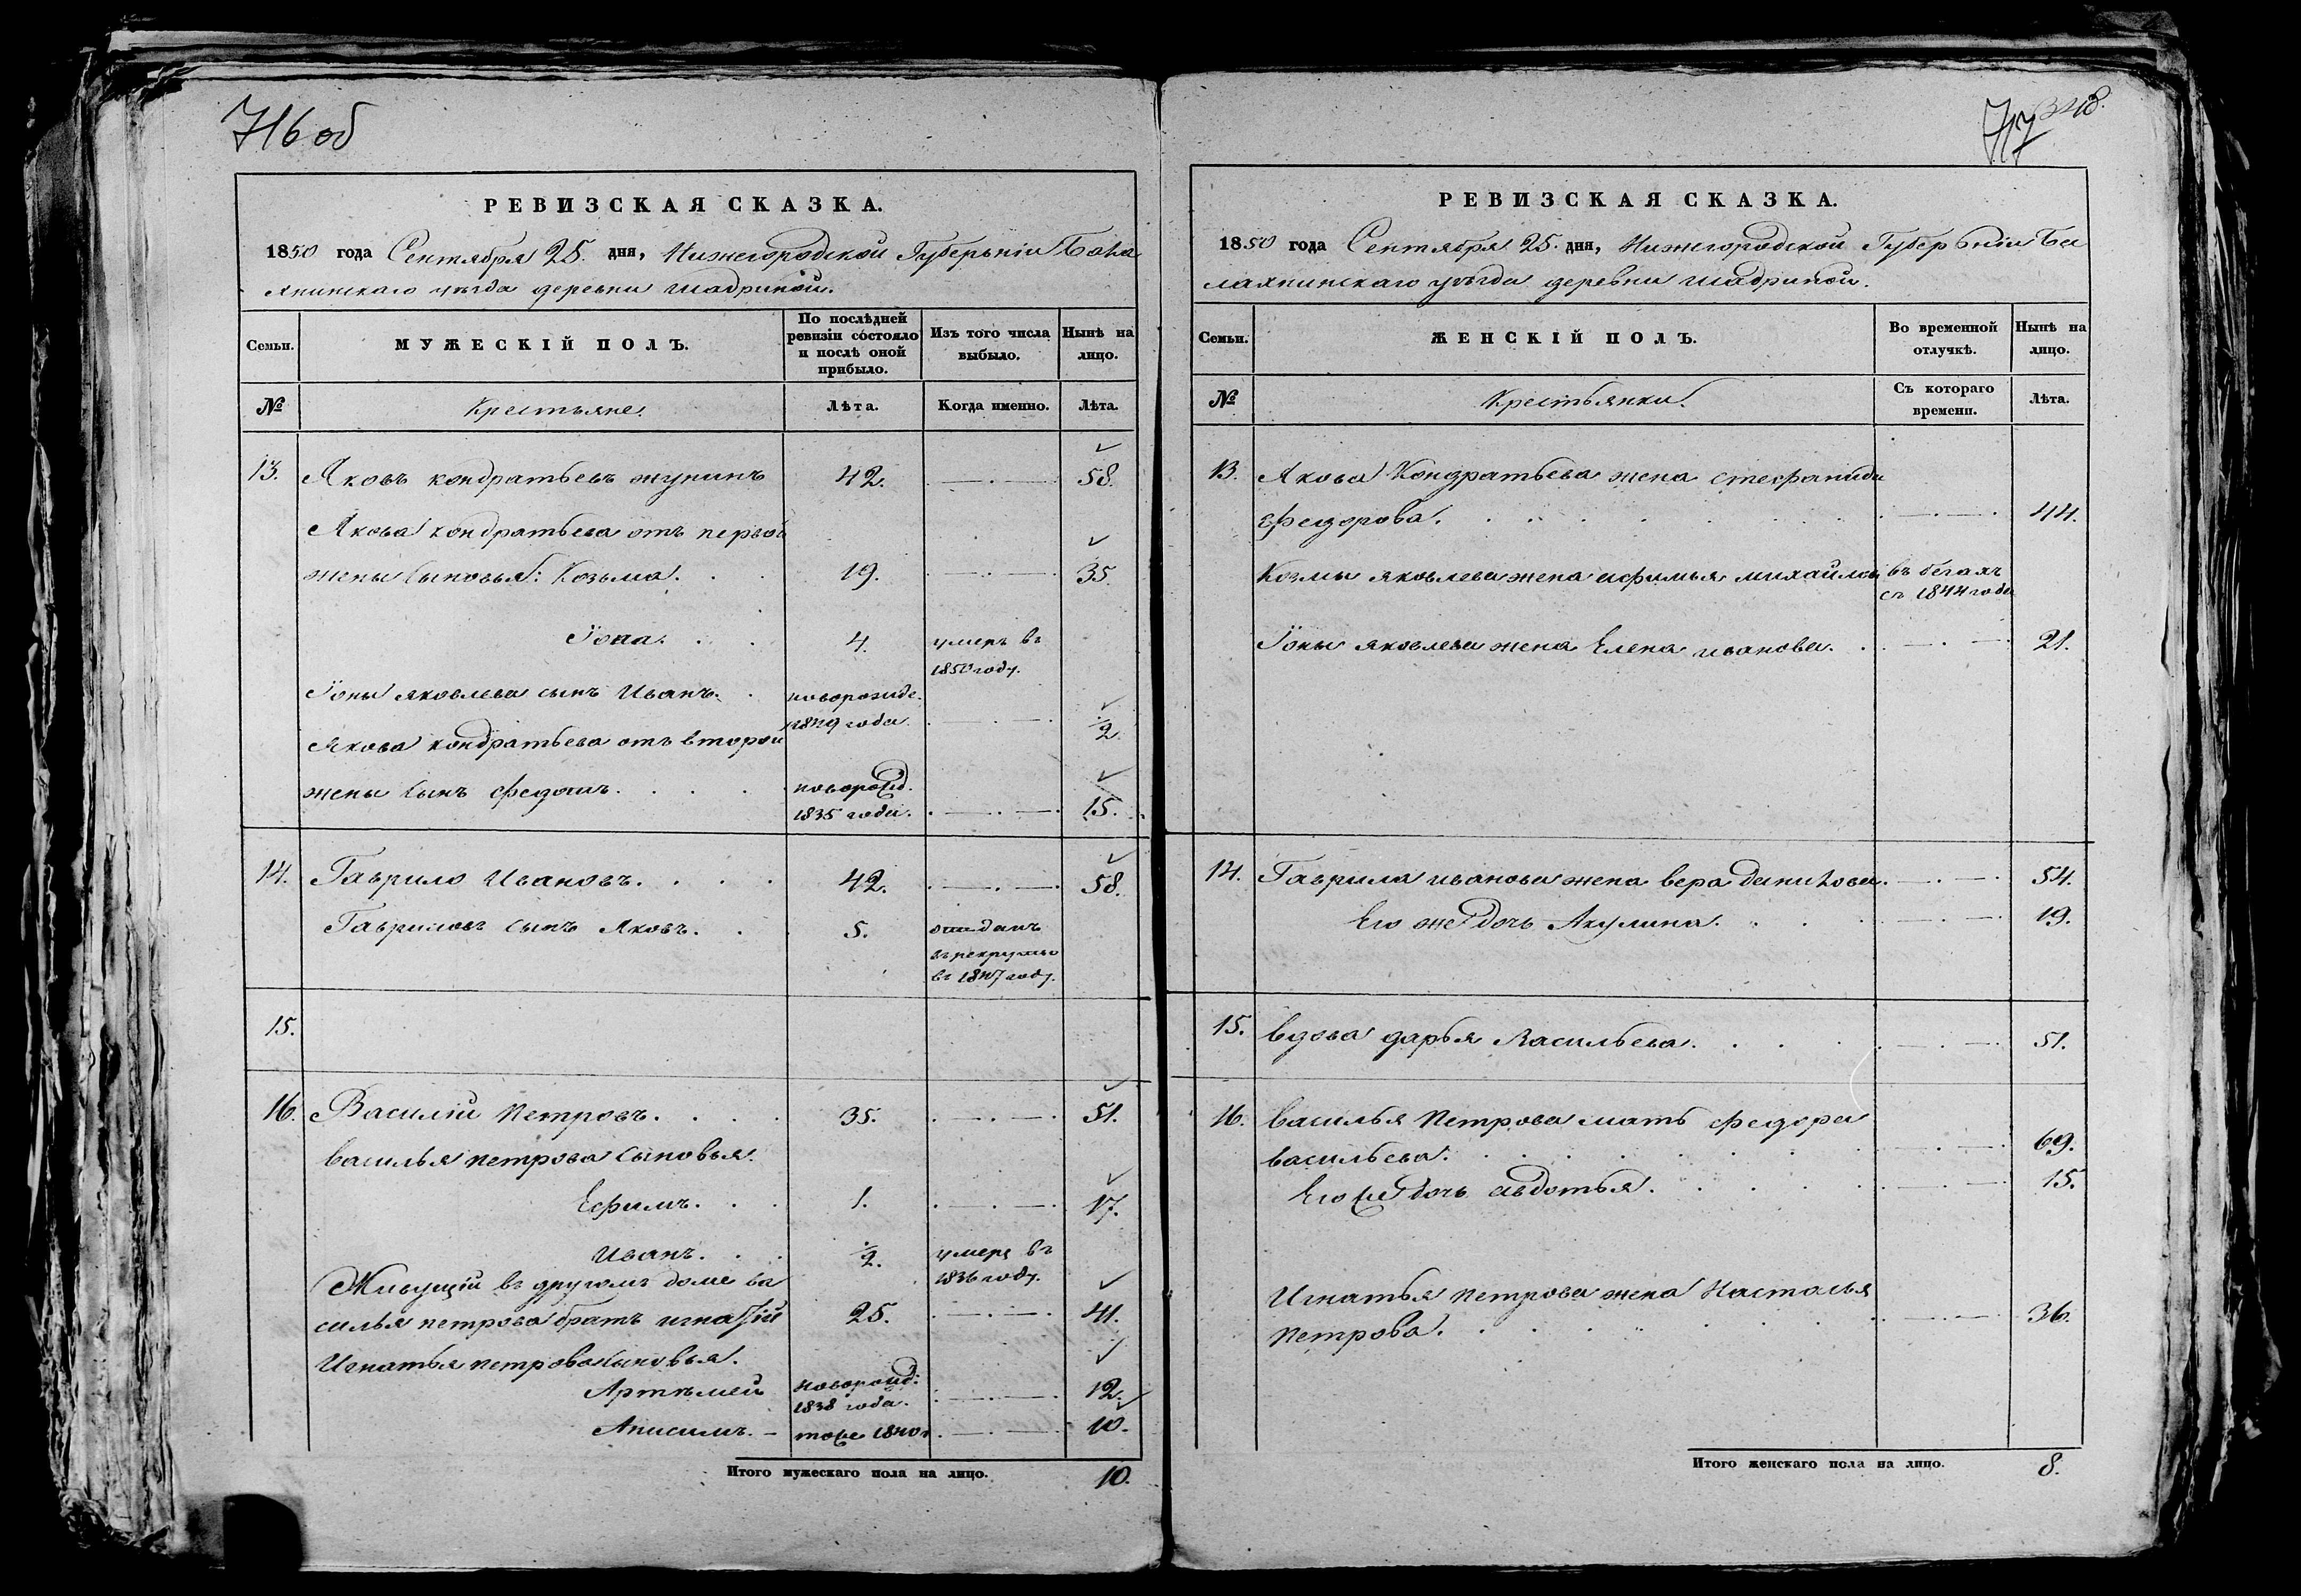 716 об
РЕВИЗСКАЯ СКАЗКА.
1850 года Сентября 25. дня, Нижегородской Губерьнiи Бала
хнинскаго уѣзда деревни шадриной.
Семьи.
МУЖЕСКІЙ ПОЛЪ.
По послѣдней ревизіи состояло и послѣ оной прибыло.
Изъ того числа выбыло.
Нынѣ на лицо.
№
Крестьяне.
Лѣта.
Когда именно.
Лѣта.
13. Яковъ кондратьевъ жунинъ 42. 58.
Якова кондратьева отъ первой
жены сыновья: Козьма. 19. 35.
Iона. 4. умеръ въ
1850 году.
Iоны яковлева сынъ Иванъ. новорожде.
1849 года. ½
Якова кондратьева отъ второй
жены сынъ федотъ. новорожд.
1835 года. 15.
14. Гаврило Ивановъ. 42. 58.
Гавриловъ сынъ Яковъ. 5. отданъ
въ рекруты
въ 1847 году.
15.
16. Василій Петровъ. 35. 51.
василья петрова сыновья.
Ефимъ. 1. 17.
Иванъ. ½ умеръ въ
1836 году.
Живущій въ другомъ доме ва
силья петрова братъ игнатій 25. 41.
Игнатья петрова сыновья.
Артѣмей новорожд:
1838 года. 12.
Анисимъ. тоже 1840 г. 10.
Итого мужескаго пола на лицо. 10.
717
348.
РЕВИЗСКАЯ СКАЗКА.
1850 года Сентября 25. дня, Нижегородской Губерьнiи Ба
лахнинскаго уѣзда деревни шадриной.
Семьи.
ЖЕНСКІЙ ПОЛЪ.
Во временной отлучкѣ.
Нынѣ на лицо.
№
Крестьянки.
Съ котораго времени.
Лѣта.
13. Якова Кондратьева жена стефанида
федорова. 44.
Козмы яковлева жена афимья михайлова въ бегахъ
съ 1844 года
Iоны яковлева жена Елена иванова. 21.
14. Гаврила иванова жена вера данилова. 54.
Его же дочь Акулина. 19.
15. вдова дарья Васильева. 51.
16. василья Петрова мать федора
васильева. 69.
Его же дочь авдотья. 15.
Игнатья петрова жена Насталья
Петрова. 36.
Итого женскаго пола на лицо. 8.